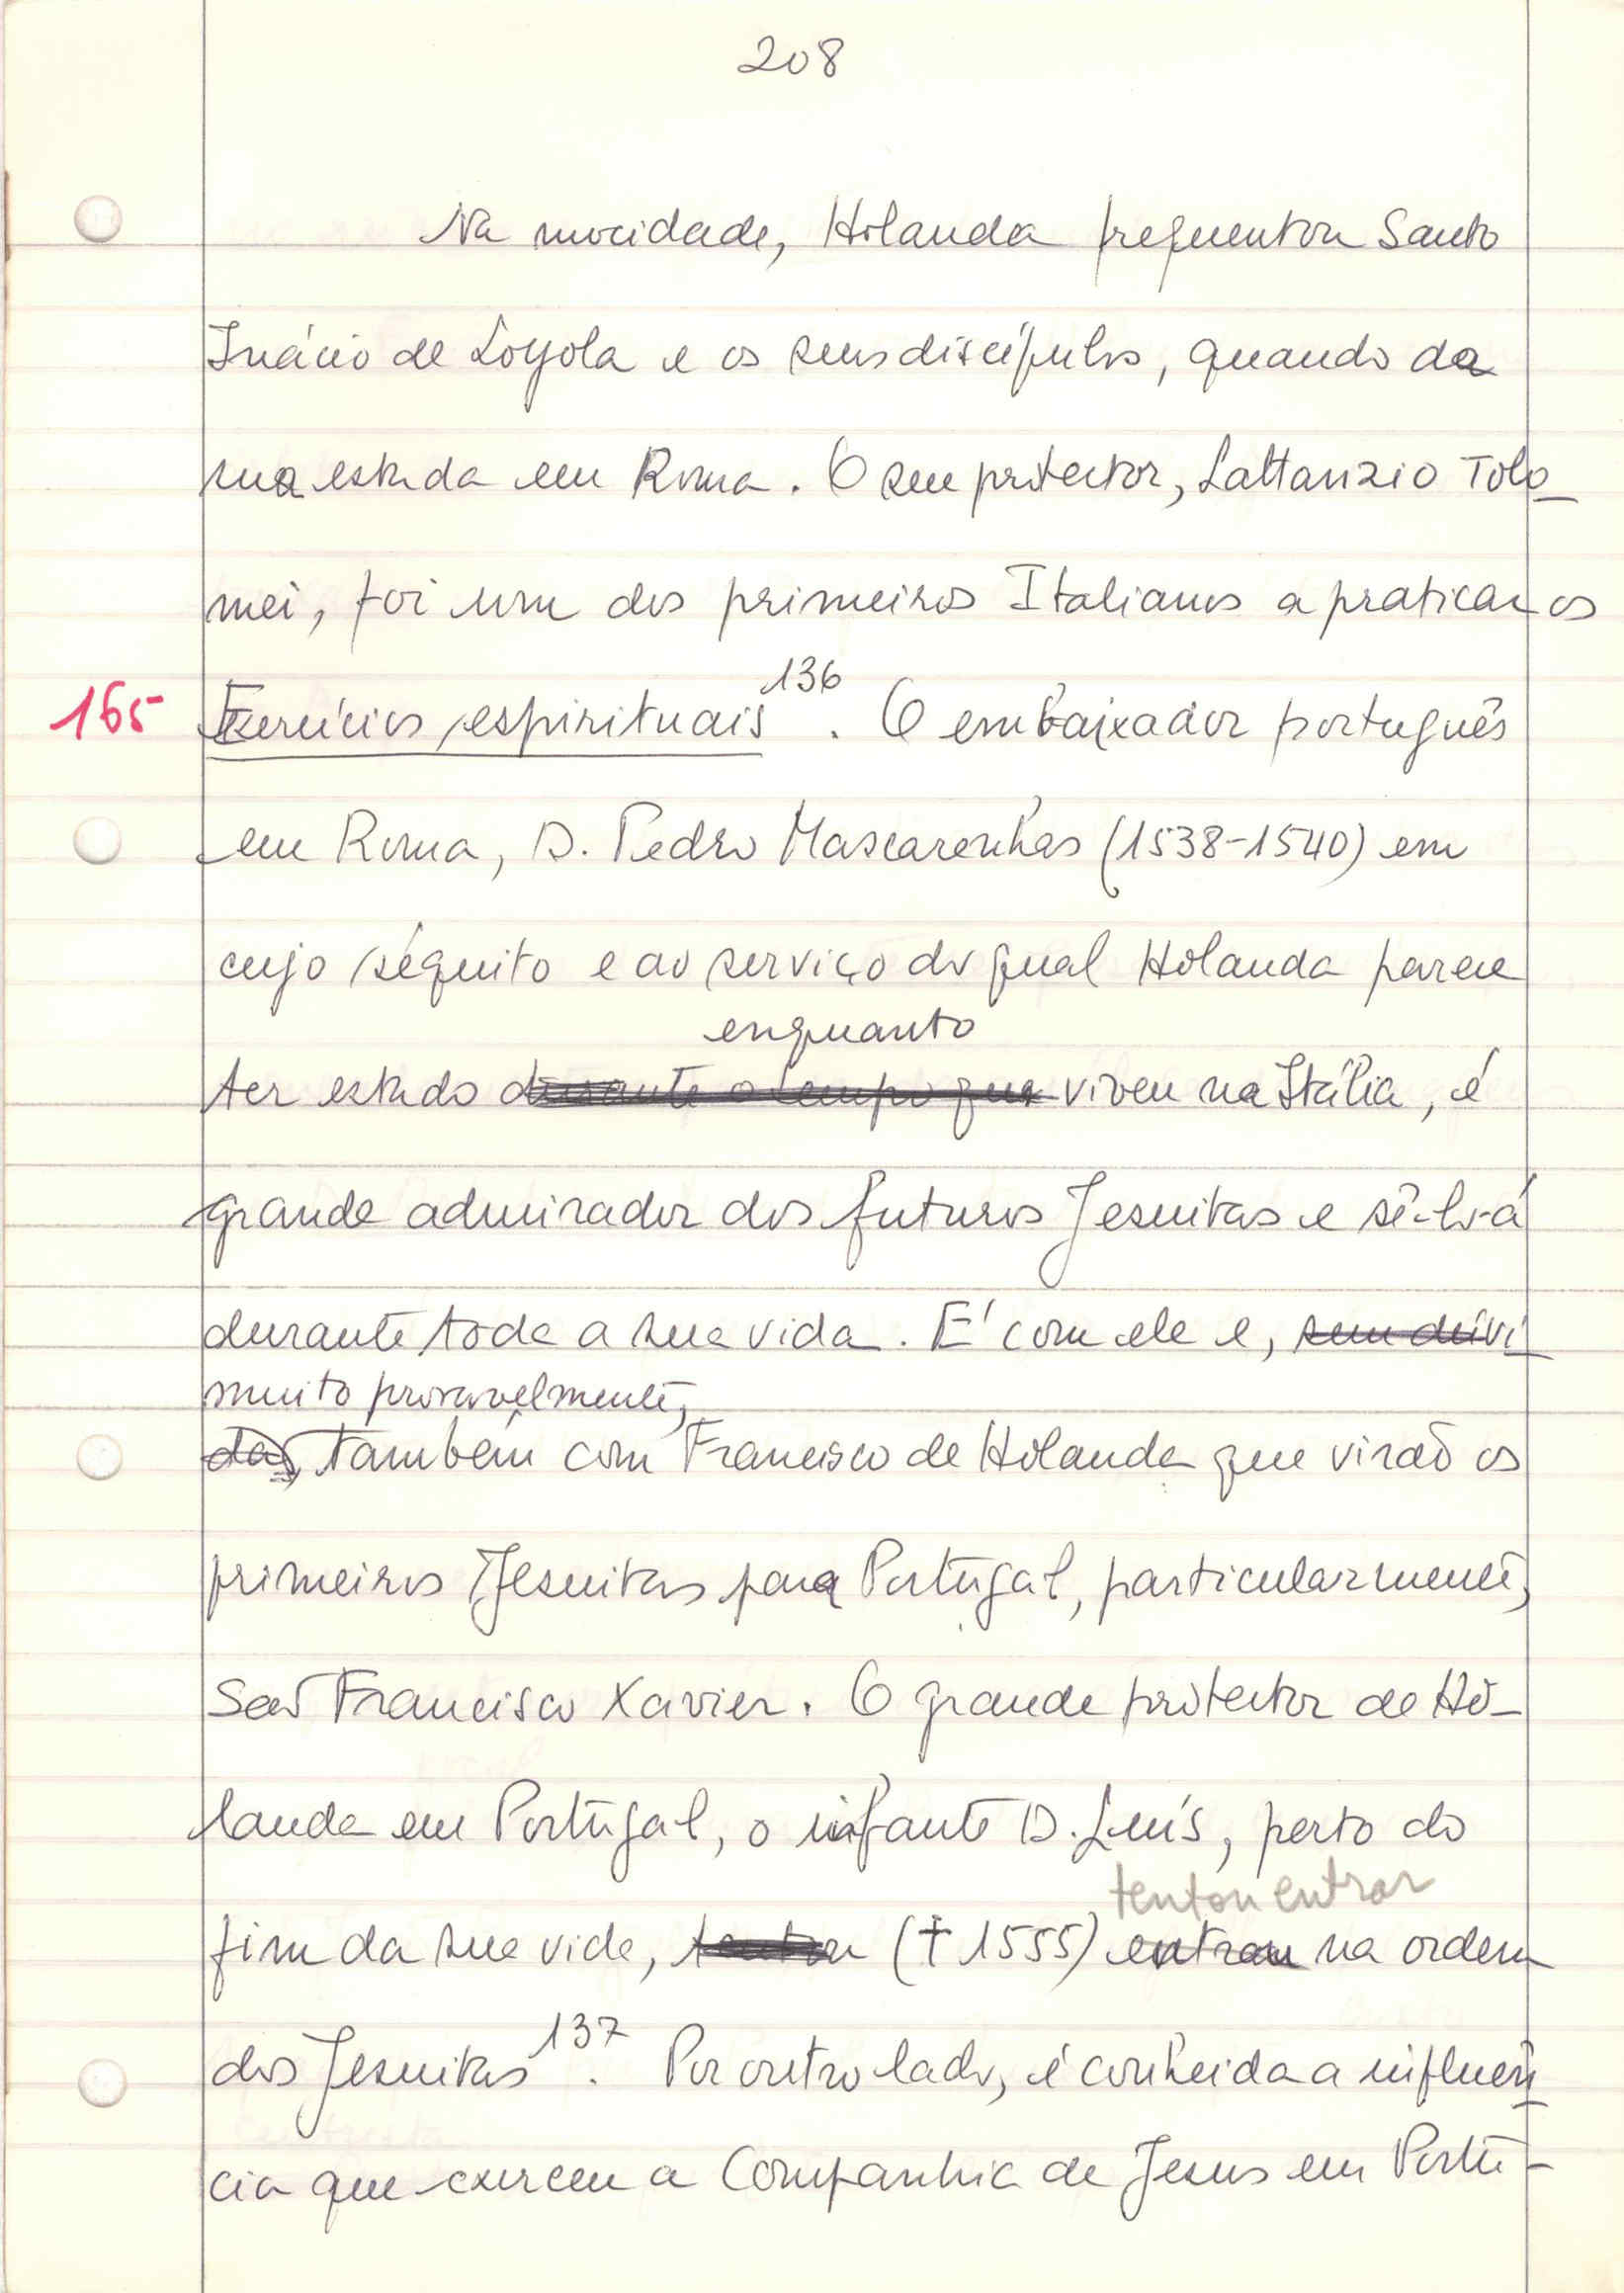 208
Na mocidade, Holanda frequentou Santo
Inácio de Loyola e os seus discípulos, quando da
sua estada em Roma. O seu protector, Lattanzio Tolo-
mei, foi um dos primeiros Italianos a praticar os
136
165 Exercícios espirituais. O embaixador português
em Roma, D. Pedro Mascarenhas (1538-1540) em
cujo séquito e ao serviço do qual Holanda parece
enquanto
ter estado durante o tempo que viveu na Itália, é
grande admirador dos futuros Jesuitas e sê-lo-á
durante toda a sua vida. É com ele e, sem dúvi-
muito provavelmente,
da, também com Francisco de Holanda que virão os
primeiros Jesuitas para Portugal, particularmente,
São Francisco Xavier. O grande protector de Ho-
landa em Portugal, o infante D. Luís, perto do
tentou entrar
fim da sua vida, tentou († 1555) entrar na ordem
137
dos Jesuitas. Por outro lado, é conhecida a influên-
cia que exerceu a Companhia de Jesus em Portu-